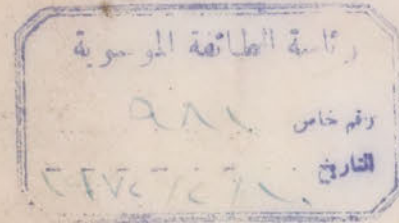 رئاسة الطائفة الموسوية
رقم خاص ٩٨١
التاريخ